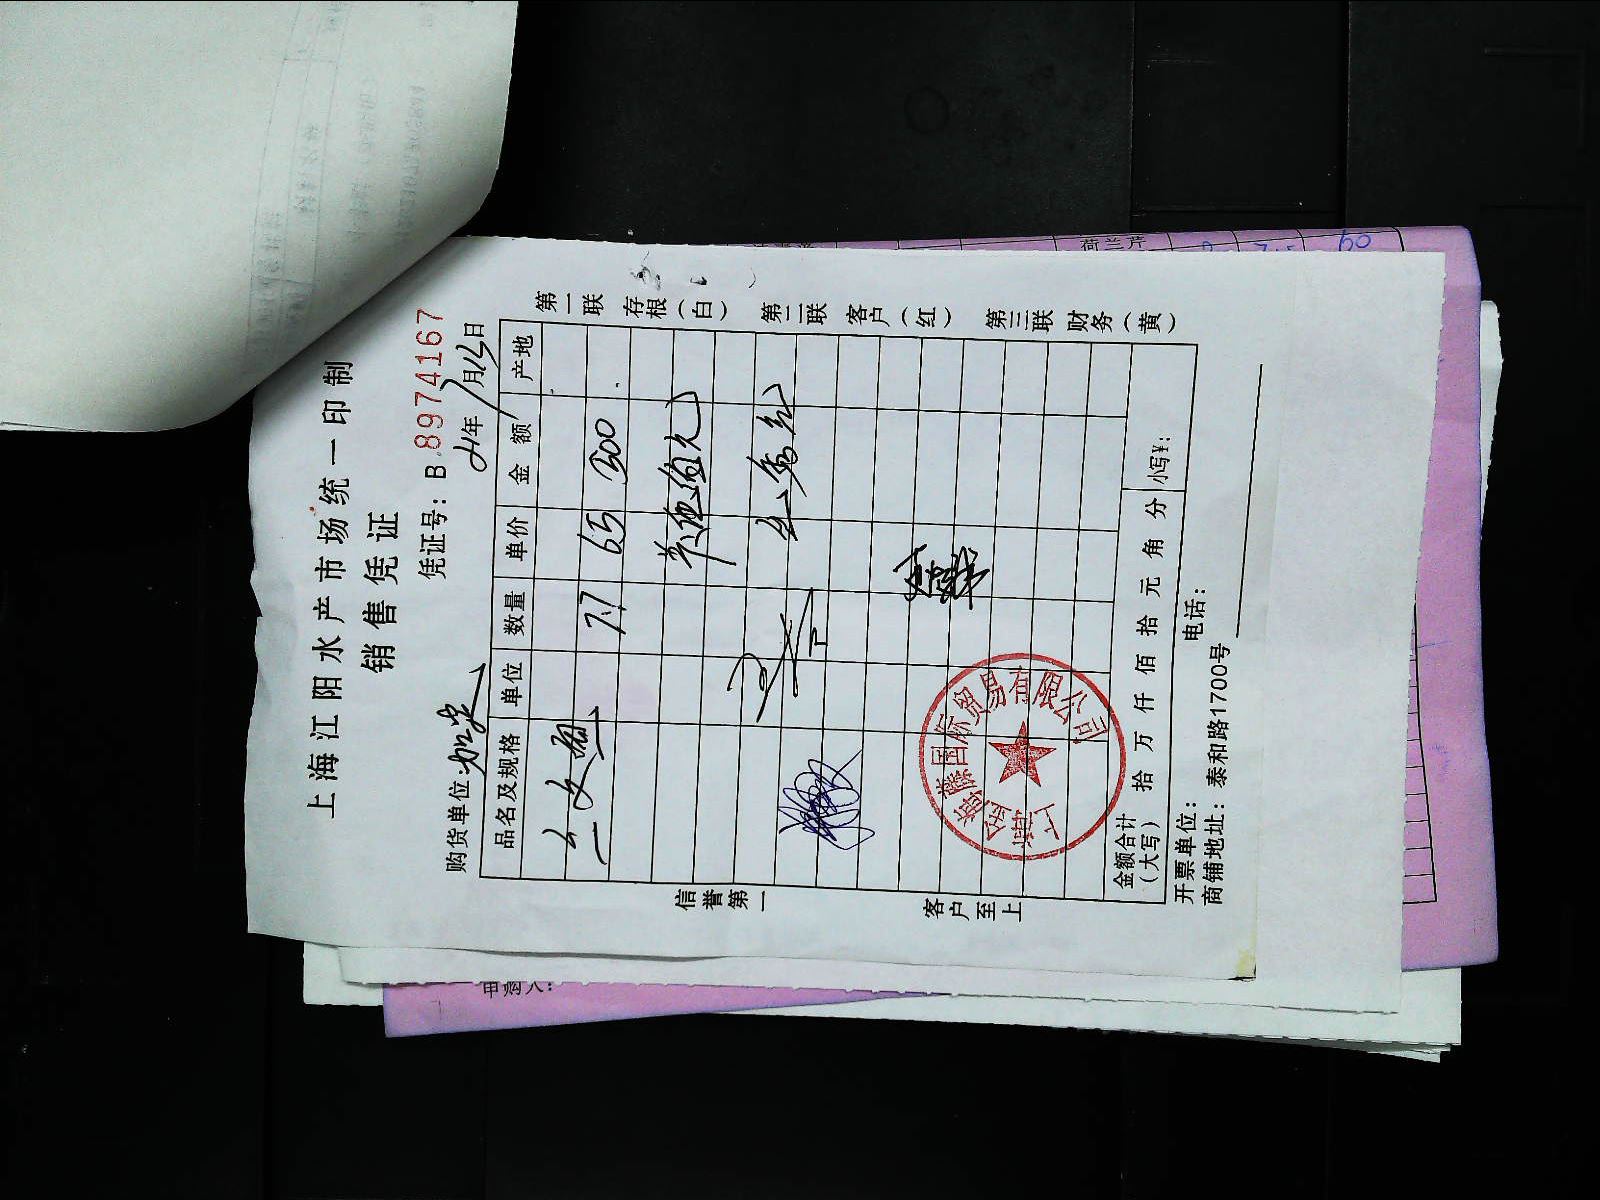 上海江阳水产市场统一印制
销售凭证
凭证号：B 8974167
购货单位：
21年1月13日
品名及规格 单位 数量 单价 金额 产地
三文鱼 7.7 65 500
伍佰元
第一联 存根（白） 第二联 客户（红） 第三联 财务（黄）
信誉第一
客户至上
上海金滕国际贸易有限公司
金额合计（大写） 拾 万 仟 佰 拾 元 角 分 小写￥：
开票单位： 电话：
商铺地址：泰和路1700号
申购人：
荷兰芹
60